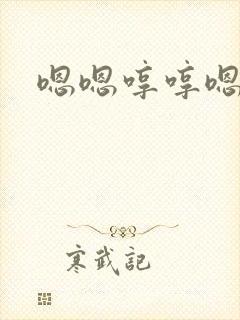 嗯嗯哼哼嗯
寒武記